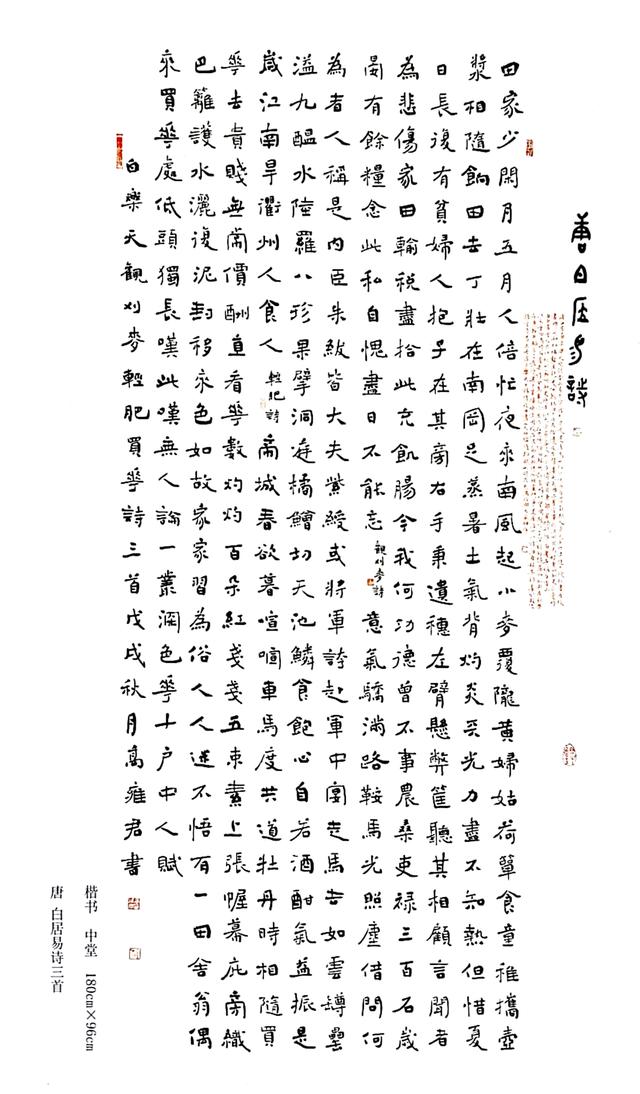 唐白居易詩
田家少閑月五月人倍忙夜來南風起小麥覆隴黃婦姑荷簞食童稚攜壺
漿相隨餉田去丁壯在南岡足蒸暑土氣背灼炎天光力盡不知熱但惜夏
日長復有貧婦人抱子在其旁右手秉遺穗左臂懸弊筐聽其相顧言聞者
為悲傷家田輸稅盡拾此充飢腸今我何功德曾不事農桑吏祿三百石歲
晏有餘糧念此私自愧盡日不能忘 觀刈麥詩 意氣驕滿路鞍馬光照塵借問何
為者人稱是內臣朱紱皆大夫紫綬或將軍誇赴軍中宴走馬去如雲罇罍
溢九醞水陸羅八珍果擘洞庭橘鱠切天池鱗食飽心自若酒酣氣益振是
歲江南旱衢州人食人 輕肥詩 帝城春欲暮喧喧車馬度共道牡丹時相隨買
華去貴賤無常價酬直看華數灼灼百朵紅戔戔五束素上張幄幕庇旁織
巴籬護水灑復泥封移來色如故家家習為俗人人迷不悟有一田舍翁偶
來買華處低頭獨長嘆此嘆無人論一叢深色華十戶中人賦
白樂天觀刈麥輕肥買華詩三首戊戌秋月高雍君書
楷书 中堂 180cm×96cm
唐 白居易诗三首